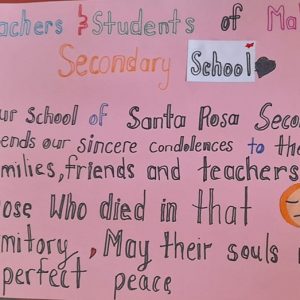 achers & Students of Ma
Secondary School
ur School of Santa Rosa Seco
ends our sincere condolences to the
milies, friends and teachers
ose Who died in that
mitory, May their souls
perfect peace